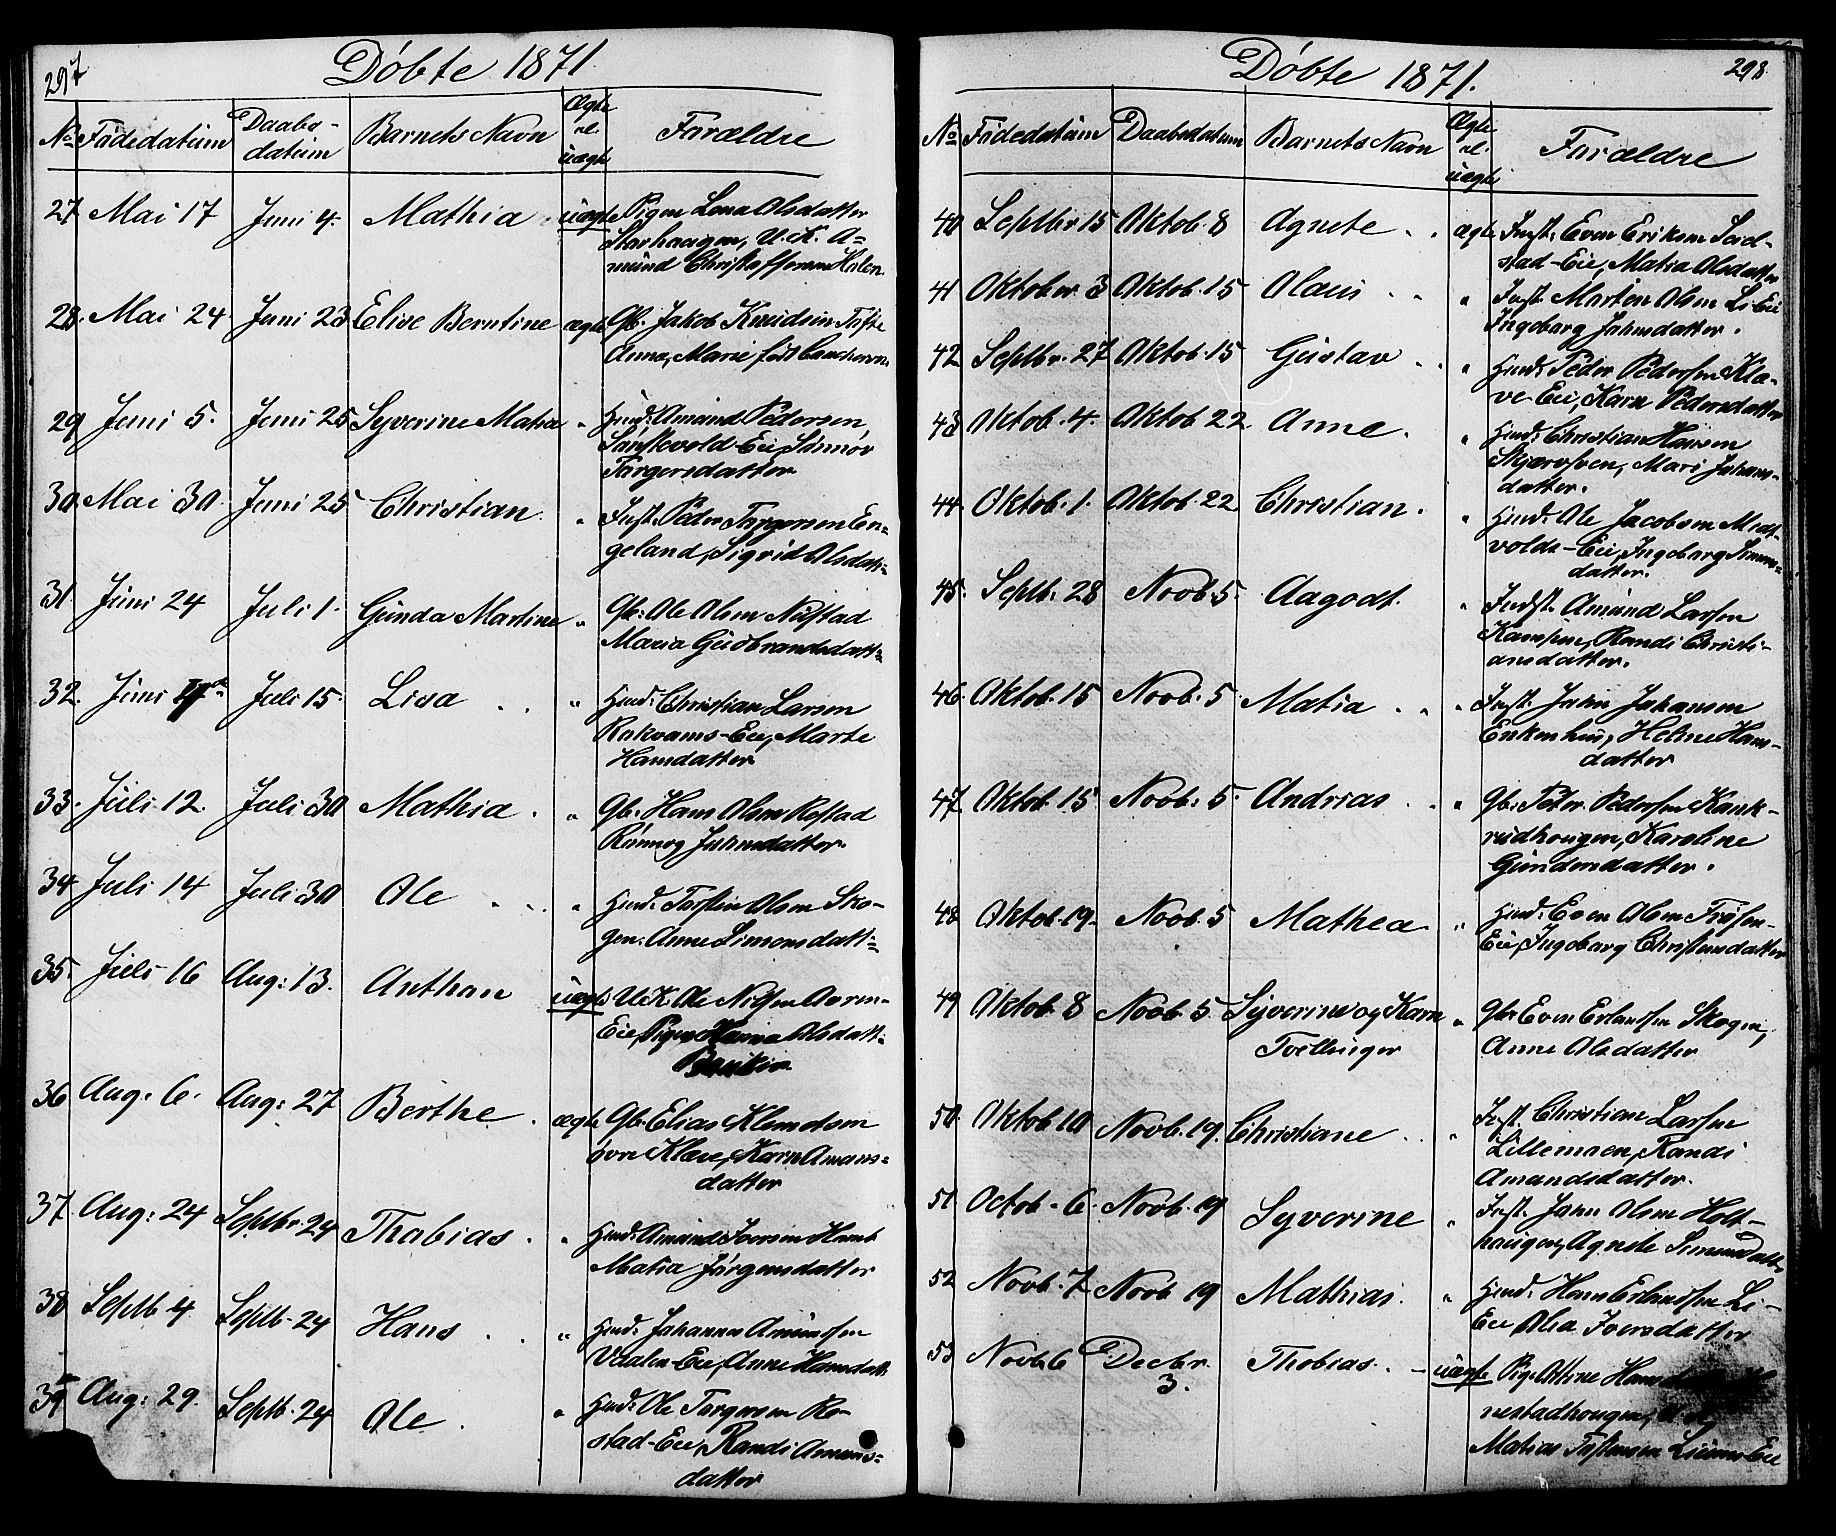 297
Döbte 1871
No Födedatum Daabsdatum Barnets Navn Ægte el. uægte Forældre
27 Mai 17 Juni 4. Mathia uægte Pigen Lena Olsdatter
Storhaugen, U. K. A=
mund Christoffersen Holen
28. Mai 24 Juni 23 Elise Berntine ægte Gb. Jakob Knudsen Tofte
Anne Marie född
29 Juni 5. Juni 25 Syverine Matia " Huusd. Amund Pedersen,
Eie,
Torgersdatter
30. Mai 30. Juni 25 Christian. " Inst. Peder Torgersen En=
geland, Sigrid Olsdatt=
31. Juni 24 Juli 1. Gunda Martine " Gb. Ole Olsen Nustad
Maria Gudbrandsdatt=
32. Juni Juli 15. Lisa " Huusd. Christian Larsen
Rokvams-Eie, Marte
Hansdatter
33. Juli 12. Juli 30 Mathia. " Gb. Hans Olsen Rostad
Rönnog Johnsdatter.
34 Juli 14 Juli 30 Ole " Huusd. Torsten Olsen Sko-
gen. Anne Simonsdatt=
35. Juli 16 Aug: 13. Anthon uægte U.K Ole Nilsen
Eie, Pigen Olsdatt=
36 Aug. 6. Aug: 27 Berthe. ægte Gb. Elias Klemetsen
övre Klæve, Karn Amans-
datter
37. Aug: 24 Septbr. 24 Thobias. " Huusd. Amund Iversen
Matia Jörgensdatter
38 Septb 4 Septb. 24 Hans " Huusd. Johannes Amundsen
Vaalen-Eie, Anne Hansdatt.
39 Aug: 29. Septb. 24 Ole. " Huusd. Ole Torgersen Ro-
stad-Eie, Randi Amuns=
datter
298
Döbte 1871.
No Födedatum Daabsdatum Barnets Navn Ægte el. uægte Forældre
40 Septbr 15 Oktob. 8 Agnete ægte Inst. Even Eriksen
stad-Eie, Matia Olsdatter
41 Oktober 3 Oktob. 15 Olaus " Inst. Marten Olsen Li Eie
Ingeborg Johnsdatter.
42 Septbr. 27 Oktob. 15 Gustav " Huusd. Peder Pedersen Klæ-
ve Eie, Karn Pedersdatter
43 Oktob. 4. Oktob 22 Anne. " Huusd. Christian Hansen
Mari Johans-
datter.
44. Oktob. 1. Oktob. 22 Christian. " Huusd. Ole Jacobsen
volds-Eie, Ingeborg Simens=
datter.
45. Septb. 28 Novb. 5. Aagodt. " Indst. Amund Larsen
Kampen, Randi Christi-
ansdatter.
46. Oktob. 15 Novb. 5 Matia " Inst. John Johansen
Enkenhus, Helene Hans-
datter
47 Oktob. 15 Novb. 5. Andrias " Gb. Peter Pedersen Kank-
rudhougen, Karoline
Gundersdatter.
48. Oktob. 19. Novb. 5 Mathea " Huusd. Even Olsen Frysen-
Eie, Ingeborg Christensdatter
49 Oktob. 8 Novb. 5 Syverine og Karn " Gb. Even Erlandsen Skogen,
Tvellinger Anne Olsdatter
50. Oktob. 10 Novb. 19. Christiane " Inst. Christian Larsen
Lillemoen, Randi
Amandsdatter.
51 Octob. 6. Novb. 19 Syverine " Inst. John Olsen Holt-
haugen, Agnete Simensdatt.
52 Novb. 7 Novb. 19 Mathias. " Huusd. Hans Erlandsen Li-
Eie, Olea Iversdatter
53 Novb. 6 Decbr. 3. Thobias. uægte Pig. Oline
nestadhougen, U. K.
Matias Torstensen Eie